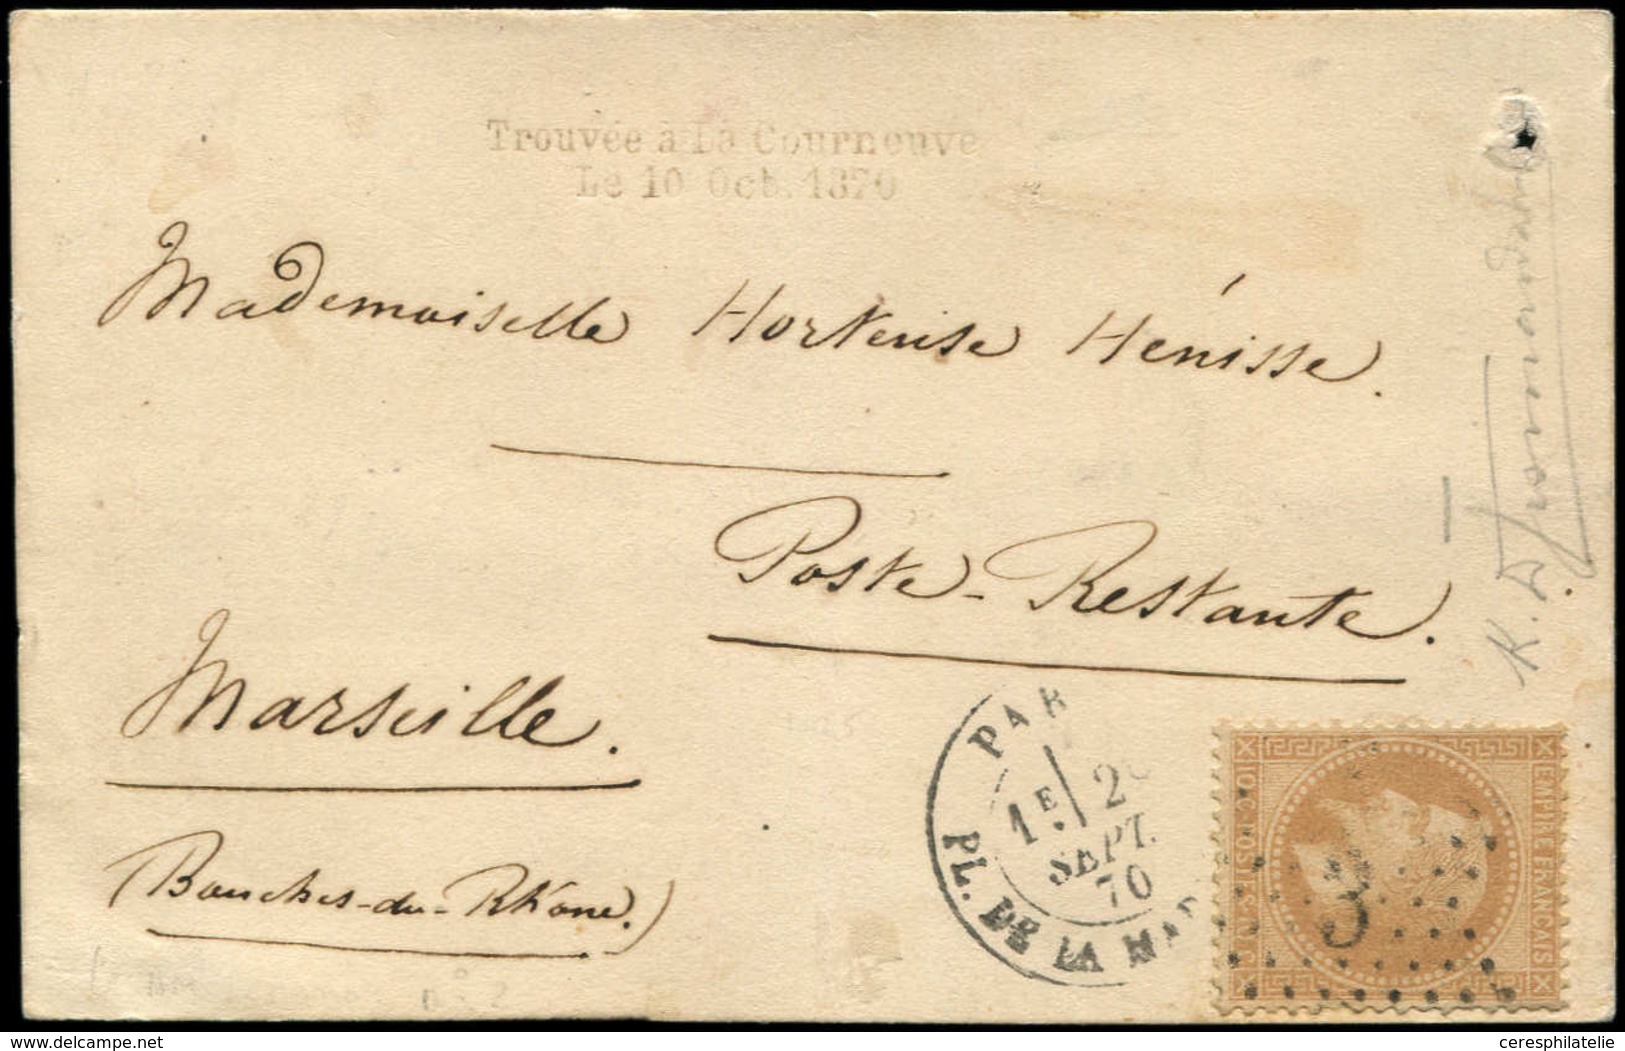 Trouvée à La Courneuve
Le 10 Oct. 1870
Mademoiselle Hortense Hénisse.
Poste-Restante.
Marseille.
(Bouches-du-Rhône.)
PAR
1E 2
SEPT.
70
PL. DE LA MAD
EMPIRE FRANÇAIS
10 c POSTES 10 c
3
delcampe.net
ceresphilatelie